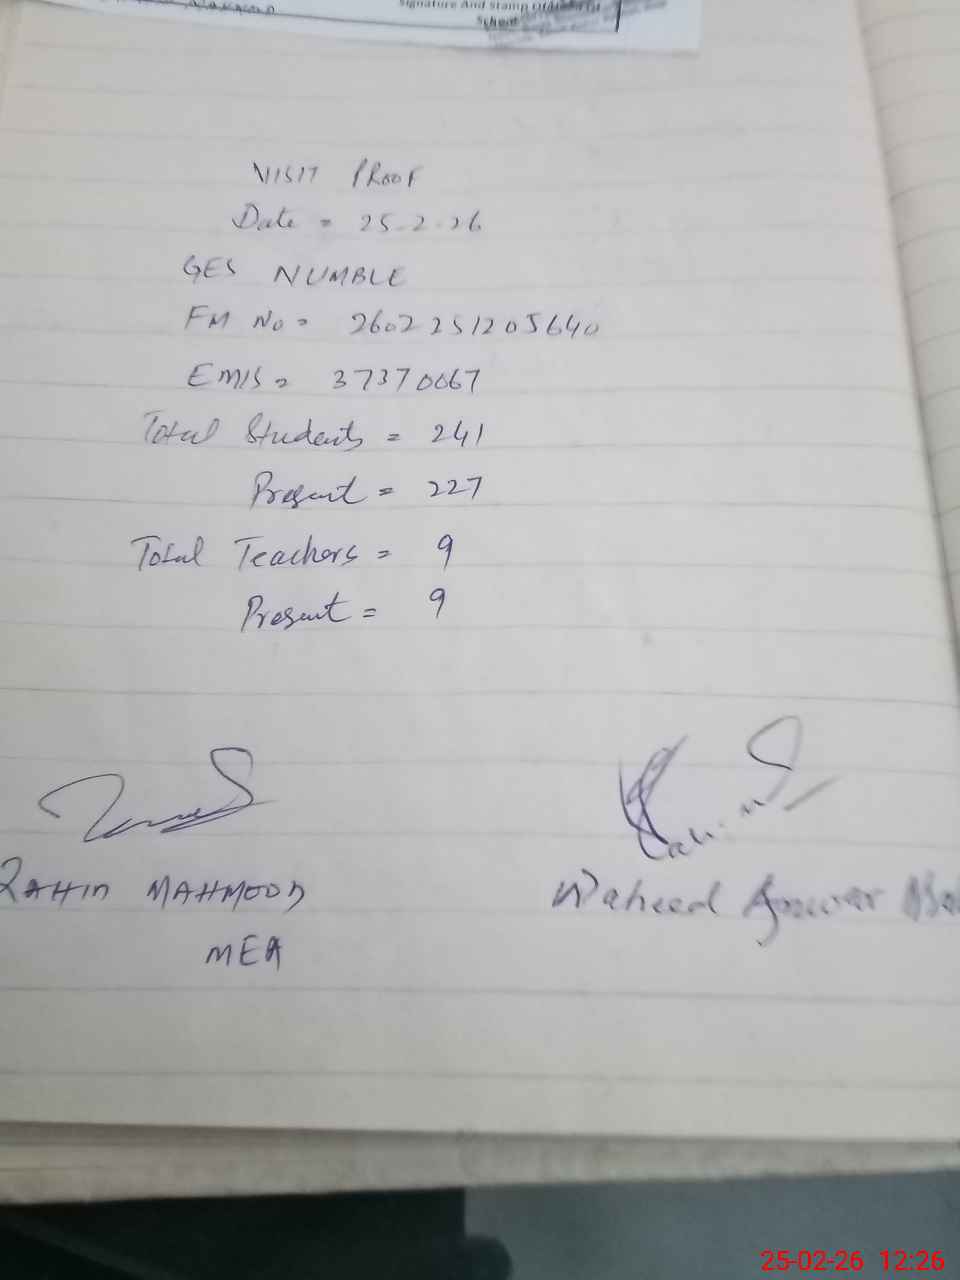 Signature And Stamp Of Head Of
School
VISIT PROOF
Date = 25-2-26
GES NUMBLE
FM No = 2602251205640
EMIS = 37370067
Total Students = 241
Present = 227
Total Teachers = 9
Present = 9
MAHMOOD
Waheed Anwar
MEA
25-02-26 12:26